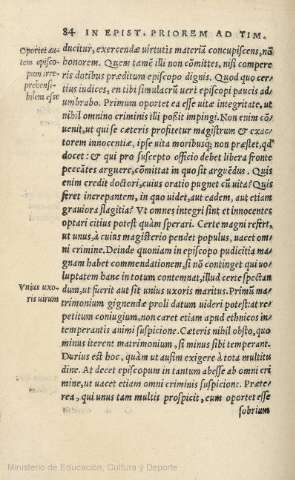 84 IN EPIST. PRIOREM AD TIM.
Oportet ea-
tem episco-
pum irre-
prehensi-
bilem esse
ducitur, exercendæ uirtutis materiã concupiscens, nõ
honorem. Quem tamẽ illi non cõmittes, nisi compere-
ris dotibus præditum episcopo dignis. Quod quo cer-
tius iudices, en tibi simulacrũ ueri episcopi paucis ad-
umbrabo. Primum oportet ea esse uitæ integritate, ut
nihil omnino criminis illi possit impingi. Non enim cõ-
uenit, ut qui se cæteris profitetur magistrum & exac-
torem innocentiæ, ipse uita moribusq; non præstet, qđ
docet: & qui pro suscepto officio debet libera fronte
peccãtes arguere, cõmittat in quo sit arguẽdus. Quis
enim credit doctori, cuius oratio pugnet cũ uita? Quis
feret increpantem, in quo uidet, aut eadem, aut etiam
grauiora flagitia? Vt omnes integri sint et innocentes
optari citius potest quàm sperari. Certe magni refert,
ut unus, à cuius magisterio pendet populus, uacet om-
ni crimine. Deinde quoniam in episcopo pudicitia ma-
gnam habet commendationem, si nõ continget qui uo-
luptatem hanc in totum contemnat, illud certe spectan-
dum, ut fuerit aut sit unius uxoris maritus. Primũ ma-
Vnius uxo-
ris uirum
trimonium gignendæ proli datum uideri potest: at re-
petitum coniugium, non caret etiam apud ethnicos in-
temperantis animi suspicione. Cæteris nihil obsto, quo
minus iterent matrimonium, si minus sibi temperant.
Durius est hoc, quàm ut ausim exigere à tota multitu-
dine. At decet episcopum in tantum abesse ab omni cri
mine, ut uacet etiam omni criminis suspicione. Præte-
rea, qui unus tam multis prospicit, eum oportet esse
sobrium
Ministerio de Educación, Cultura y Deporte